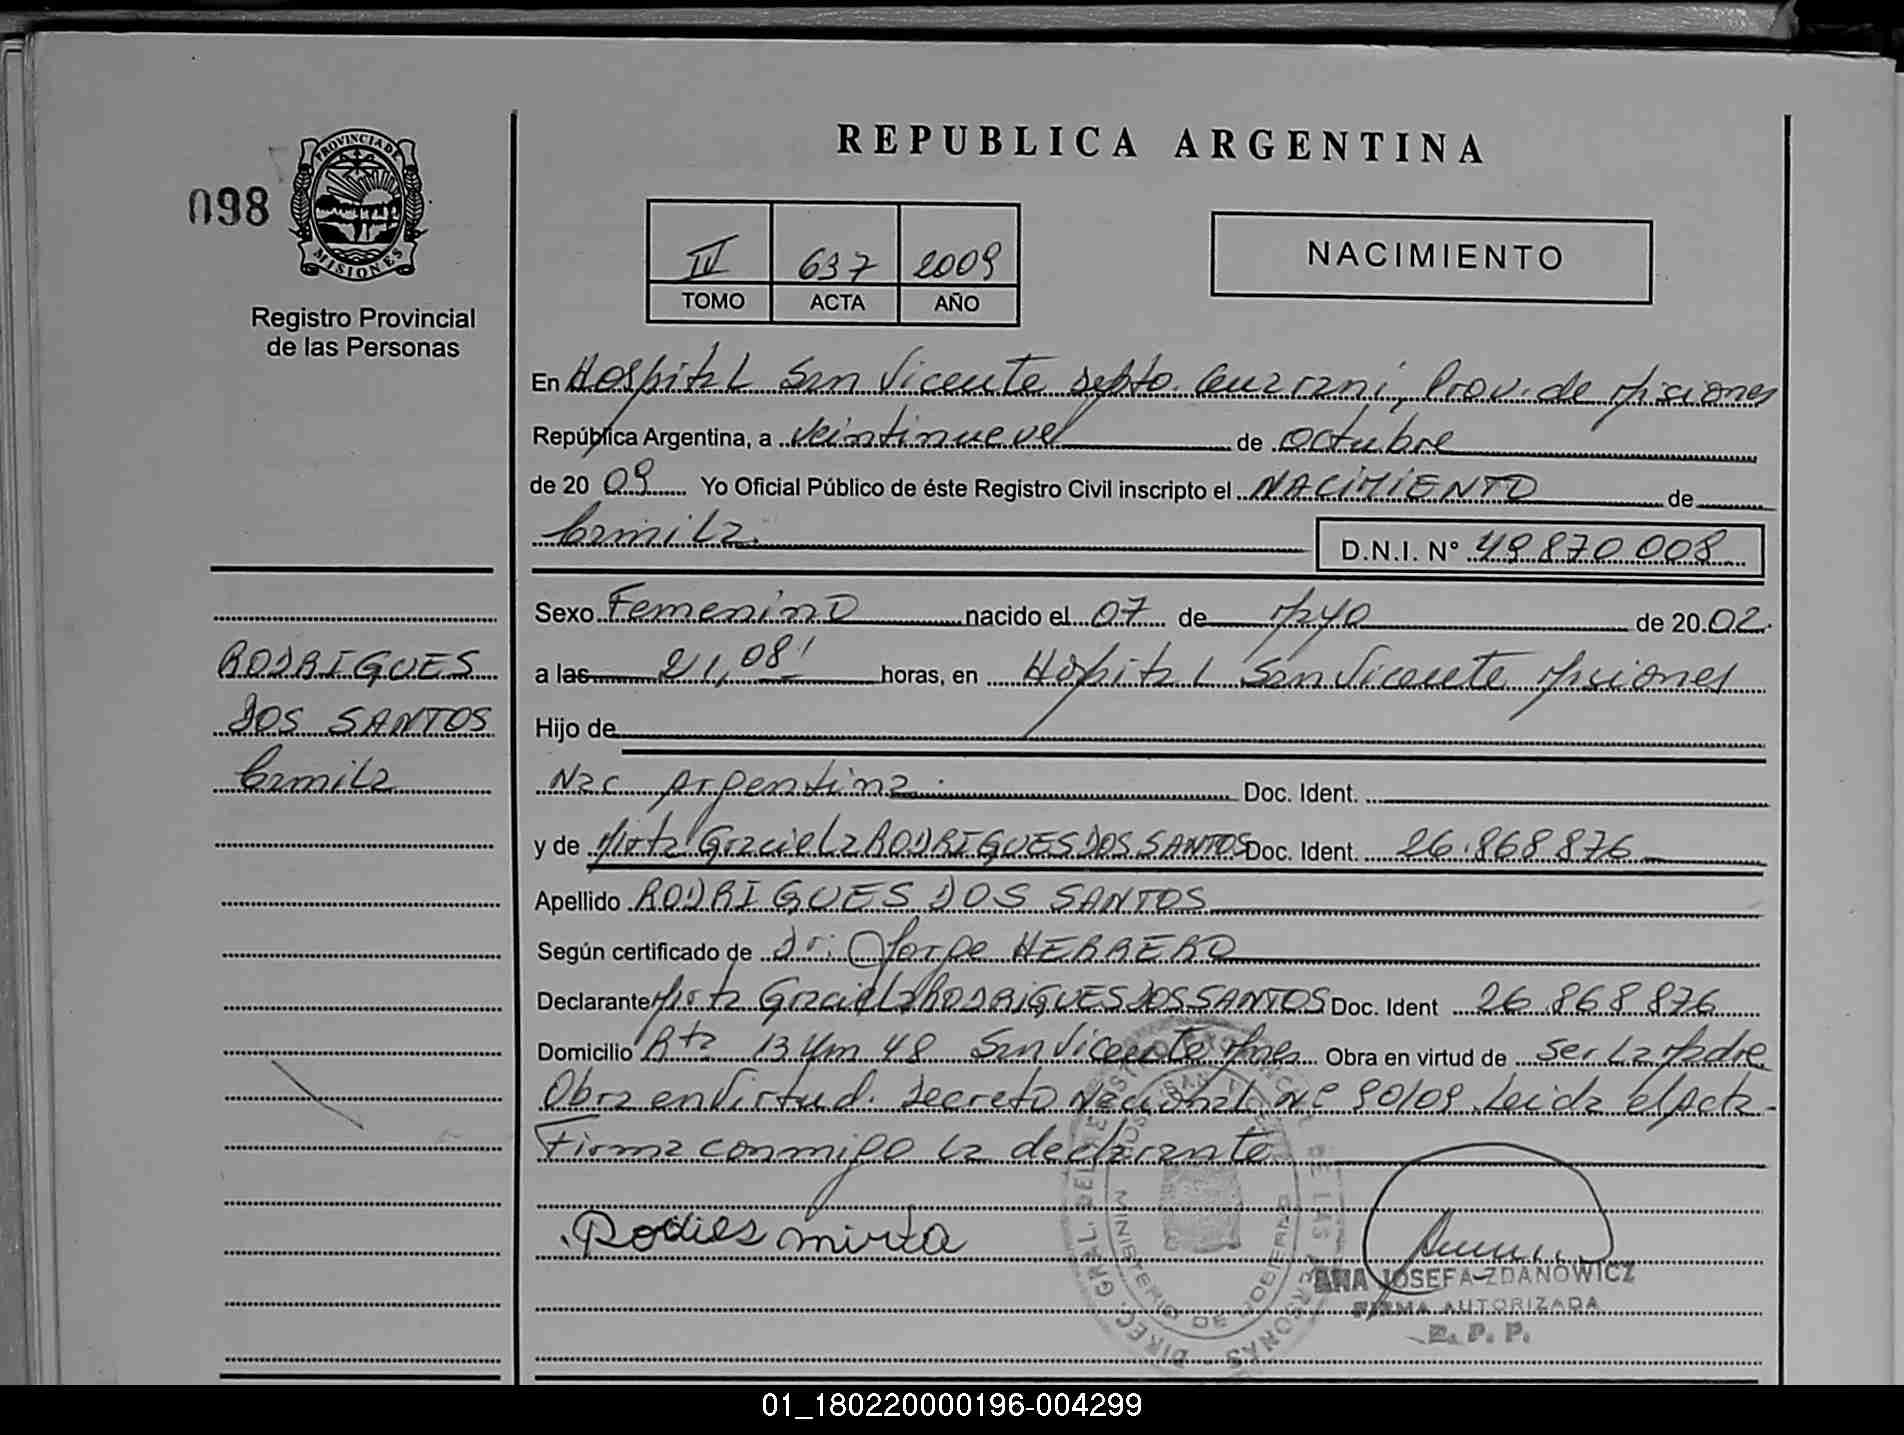 REPUBLICA ARGENTINA
098
PROVINCIA DE
MISIONES
Registro Provincial
de las Personas
IV 637 2009
TOMO ACTA AÑO
NACIMIENTO
En Hospital San Vicente Depto. Guarani, Prov. de Misiones
República Argentina, a veintinueve de octubre
de 20 09 Yo Oficial Público de éste Registro Civil inscripto el NACIMIENTO de
Camila.
D.N.I. N° 49.870.008
Sexo Femenino nacido el 07 de Mayo de 20 02
a las 21,08' horas, en Hospital San Vicente Misiones
Hijo de
Nac Argentina. Doc. Ident.
y de Mirta Graciela RODRIGUES DOS SANTOS Doc. Ident. 26.868.876
Apellido RODRIGUES DOS SANTOS
Según certificado de Dr: Jorge HERRERO
Declarante Mirta Graciela RODRIGUES DOS SANTOS Doc. Ident 26.868.876
Domicilio Rta 13 Km 48 San Vicente Mnes. Obra en virtud de ser La Madre
Obra en Virtud. Decreto Nacional N° 90/09. Leida el Acta-
Firma conmigo la declarante
RODRIGUES
DOS SANTOS
Camila
mirta
ANA JOSEFA ZDANOWICZ
FIRMA AUTORIZADA
R. P. P.
DIREC. GRAL. DEL REGISTRO DE LAS PERSONAS
MINISTERIO DE GOBIERNO
01_180220000196-004299